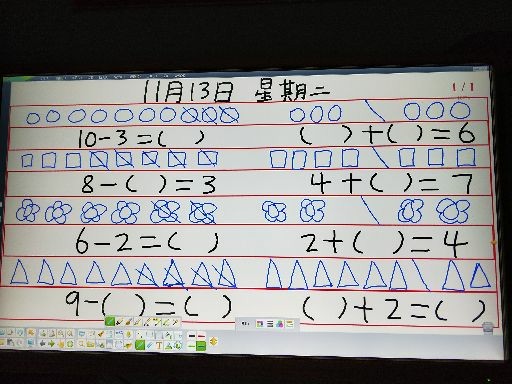 11月13日 星期二
1/1
10-3=( ) ( )+( )=6
8-( )=3 4+( )=7
6-2=( ) 2+( )=4
9-( )=( ) ( )+2=( )